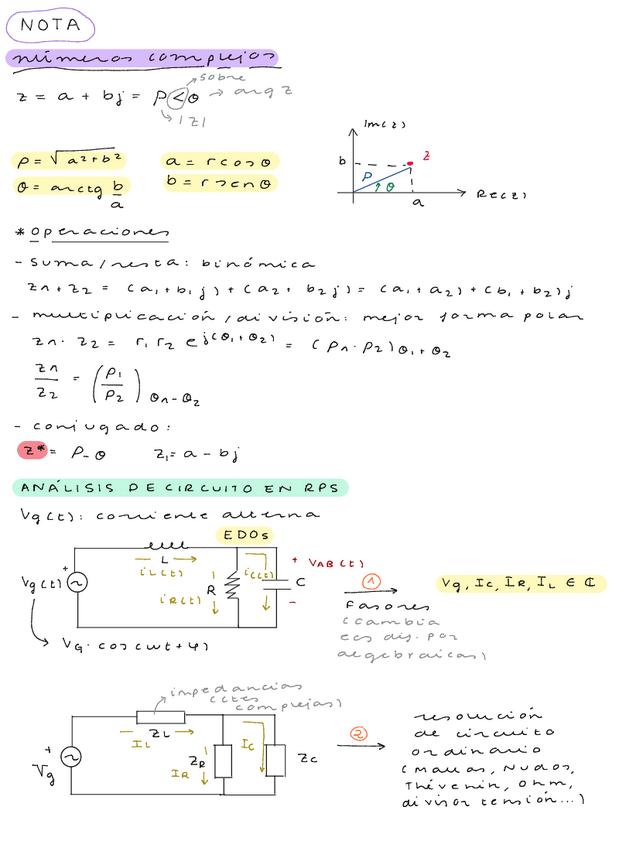 NOTA
números complejos
sobre
z = a + bj = ρ < θ → arg z
|z|
ρ = √a²+b²
a = r cos θ
θ = arctg b/a
b = r sen θ
Im(z)
b
z
ρ
θ
a
Re(z)
* operaciones
- suma/resta: binómica
z1 + z2 = (a1 + b1j) + (a2 + b2j) = (a1 + a2) + (b1 + b2)j
- multiplicación/división: mejor forma polar
z1 · z2 = r1 r2 e^j(θ1+θ2) = (ρ1 · ρ2)θ1+θ2
z1/z2 = (ρ1/ρ2)θ1-θ2
- conjugado:
z* = ρ-θ z1 = a - bj
ANÁLISIS DE CIRCUITO EN RPS
Vg(t): corriente alterna
EDOs
L
iL(t)
+ VAB(t)
ic(t)
Vg(t)
+
R
C
iR(t)
-
1
Vg, Ic, IR, IL ∈ ℂ
Fasores
(cambia
ecs dif. por
algebraicas)
VG · cos(wt+φ)
impedancias
(ctes
complejas)
ZL
IL
Ic
+
Vg
ZR
IR
Zc
2
resolución
de circuito
ordinario
(Mallas, Nudos,
Thévenin, Ohm,
divisor tensión...)